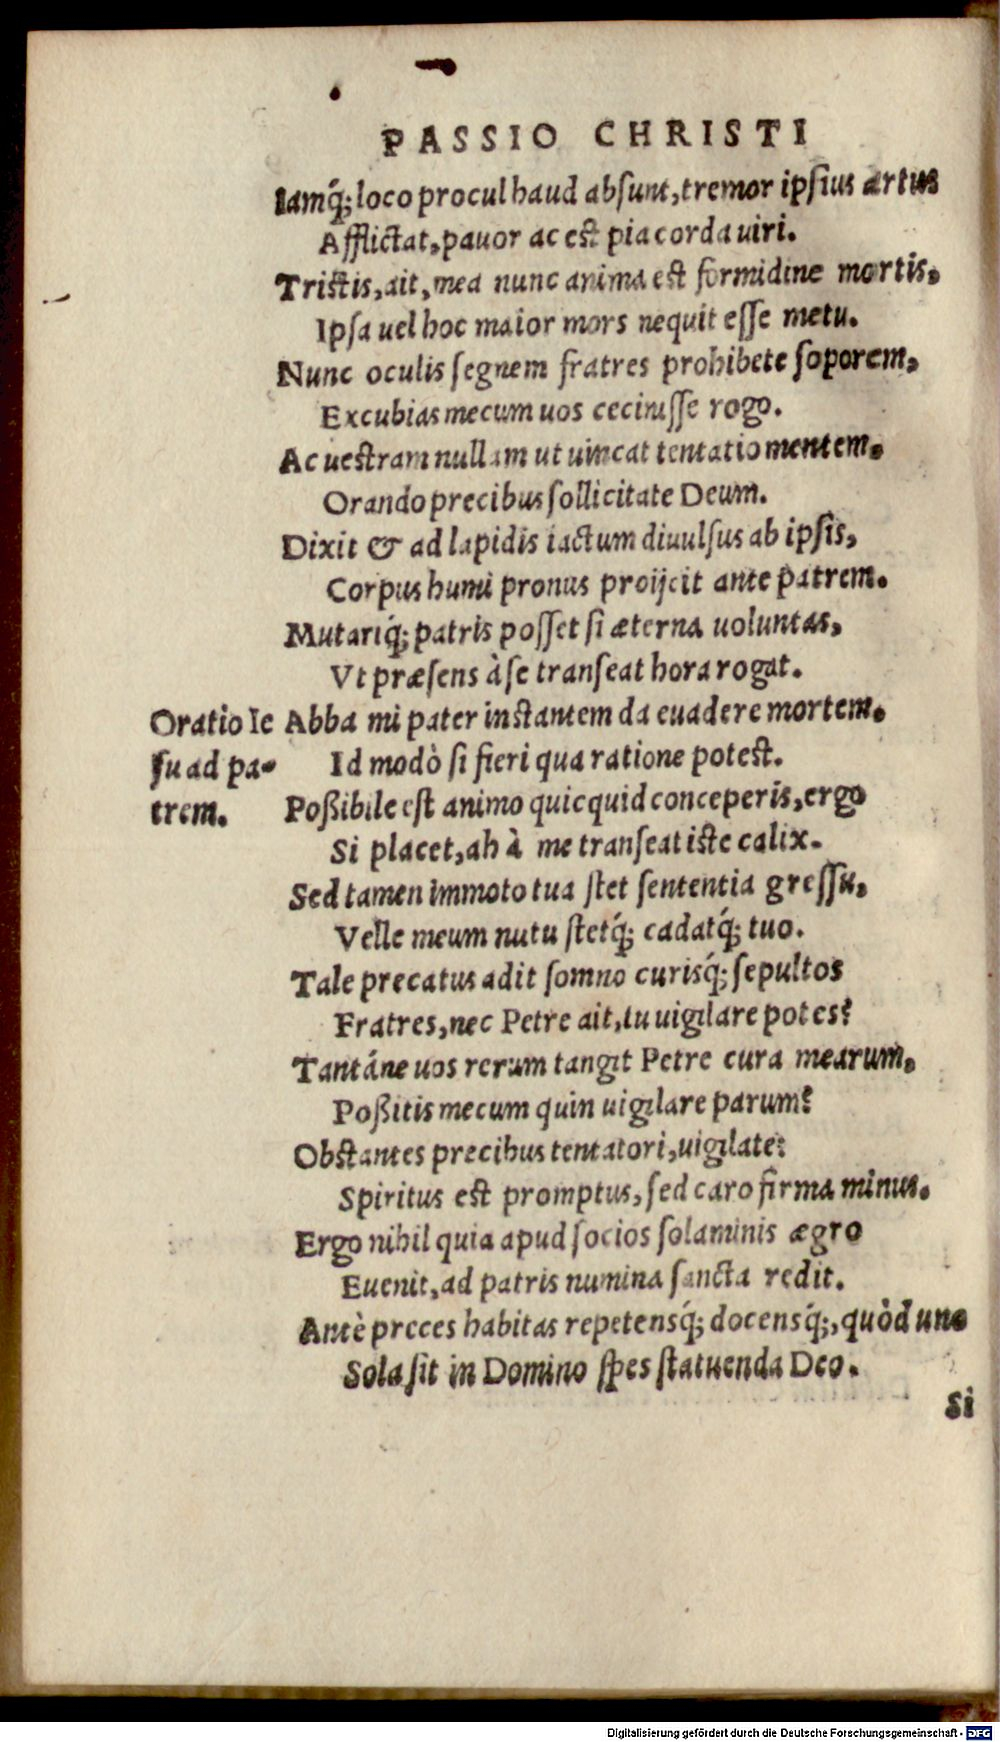 PASSIO CHRISTI
Iamq́; loco procul haud absunt, tremor ipsius artus
Afflictat, pauor ac est pia corda uiri.
Tristis, ait, mea nunc anima est formidine mortis,
Ipsa uel hoc maior mors nequit esse metu.
Nunc oculis segnem fratres prohibete soporem,
Excubias mecum uos cecinisse rogo.
Ac uestram nullam ut uincat tentatio mentem,
Orando precibus sollicitate Deum.
Dixit & ad lapidis iactum diuulsus ab ipsis,
Corpus humi pronus proijcit ante patrem.
Mutariq́; patris posset si æterna uoluntas,
Vt præsens à se transeat hora rogat.
Oratio Ie
su ad pa-
trem.
Abba mi pater instantem da euadere mortem,
Id modò si fieri qua ratione potest.
Poßibile est animo quicquid conceperis, ergo
Si placet, ah à me transeat iste calix.
Sed tamen immoto tua stet sententia gressu,
Velle meum nutu stetq́; cadatq́; tuo.
Tale precatus adit somno curisq́; sepultos
Fratres, nec Petre ait, tu uigilare potes?
Tantáne uos rerum tangit Petre cura mearum,
Poßitis mecum quin uigilare parum?
Obstantes precibus tentatori, uigilate:
Spiritus est promptus, sed caro firma minus.
Ergo nihil quia apud socios solaminis ægro
Euenit, ad patris numina sancta redit.
Antè preces habitas repetensq́; docensq́;, quòd uno
Sola sit in Domino spes statuenda Deo.
Si
Digitalisierung gefördert durch die Deutsche Forschungsgemeinschaft - DFG